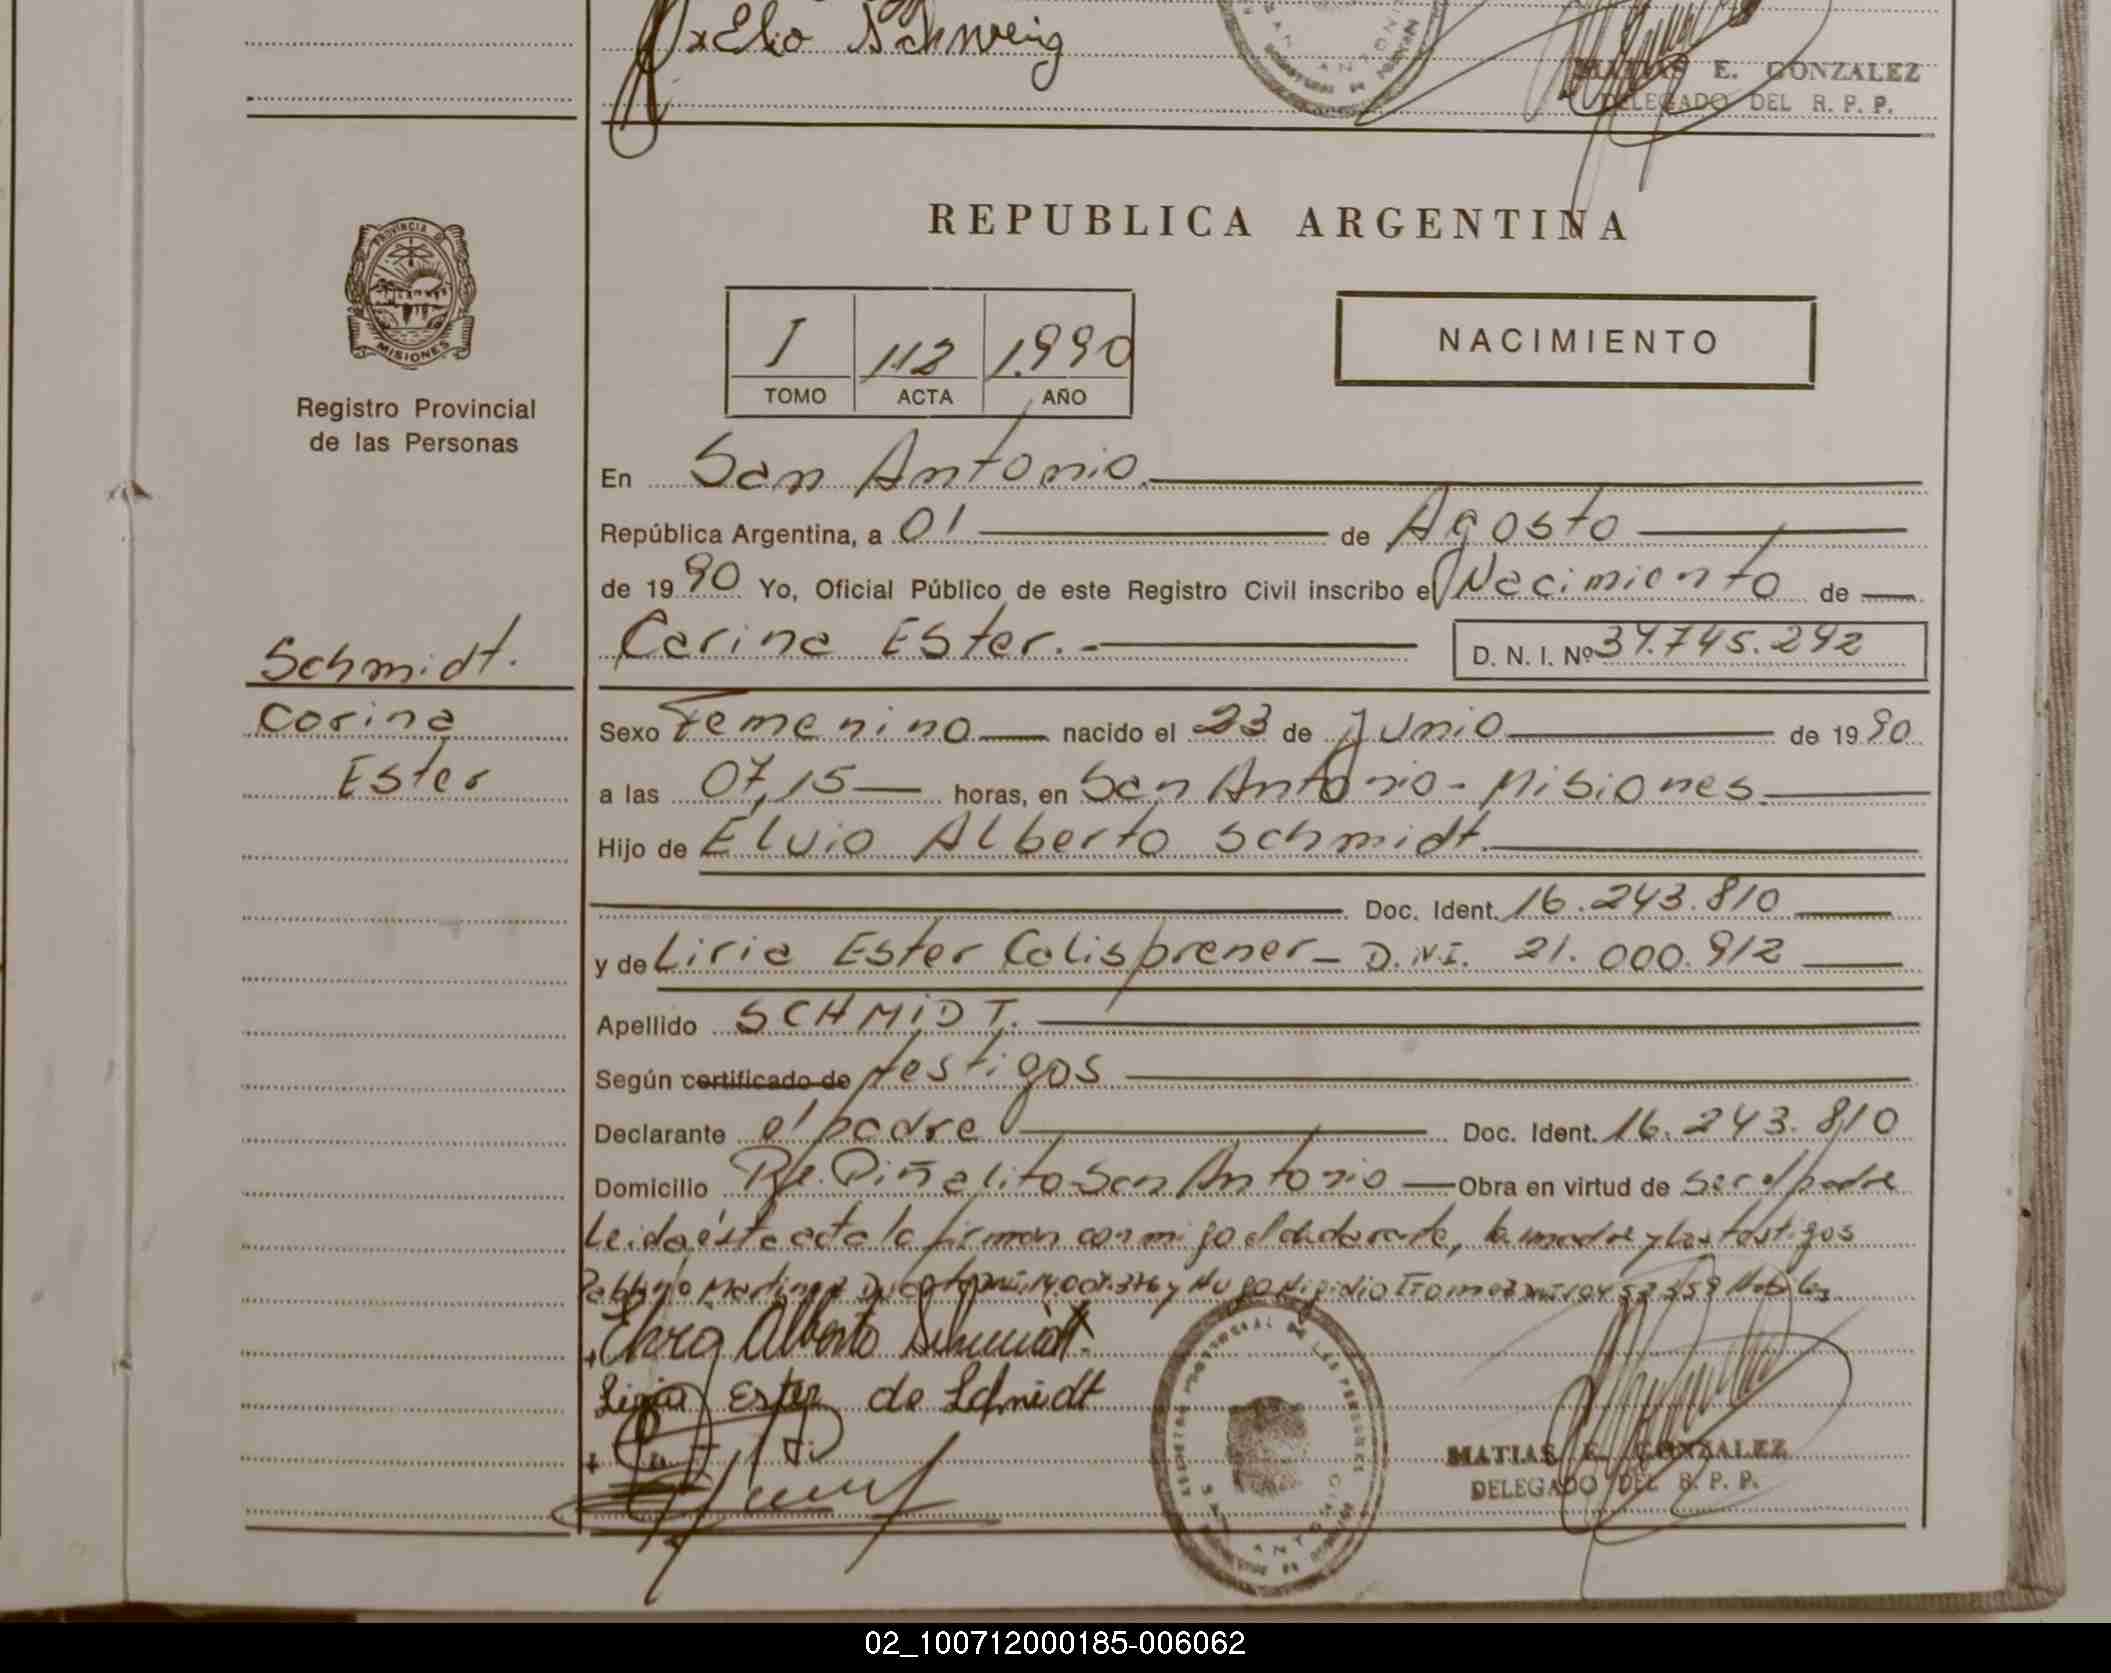 Elio Schweig
MATIAS E. GONZALEZ
DELEGADO DEL R. P. P.
REPUBLICA ARGENTINA
PROVINCIA DE
MISIONES
Registro Provincial
de las Personas
I 112 1.990
TOMO ACTA AÑO
NACIMIENTO
En San Antonio.
República Argentina, a 01 de Agosto
de 1990 Yo, Oficial Público de este Registro Civil inscribo el Nacimiento de
Carina Ester.- D. N. I. Nº 34.745.292
Schmidt.
Carina
Ester
Sexo Femenino nacido el 23 de Junio de 1990
a las 07,15 horas, en San Antonio - Misiones.
Hijo de Elvio Alberto Schmidt.
Doc. Ident. 16.243.810
y de Liria Ester Calisprener - D.N.I. 21.000.912
Apellido SCHMIDT.
Según certificado de testigos
Declarante el padre Doc. Ident. 16.243.810
Domicilio Pje. Piñalito San Antonio Obra en virtud de ser el padre
Leida ésta acta la firman conmigo el declarante, la madre y los testigos
Martinez y Hugo
Alberto Schmidt.
Ester de Schmidt
SAN ANTONIO
MATIAS E. GONZALEZ
DELEGADO DEL R. P. P.
02_100712000185-006062